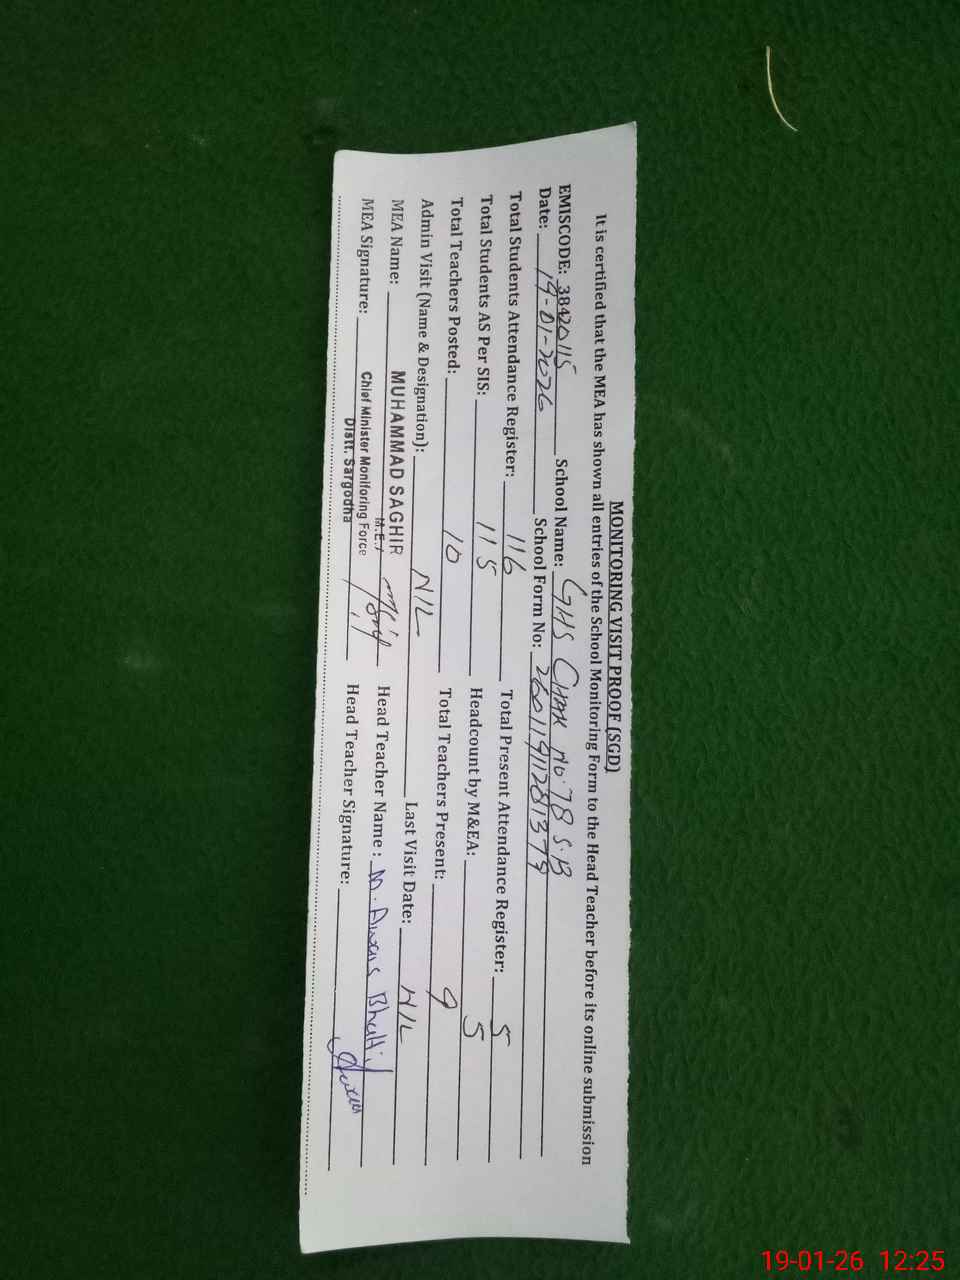 MONITORING VISIT PROOF (SGD)
It is certified that the MEA has shown all entries of the School Monitoring Form to the Head Teacher before its online submission
EMISCODE: 38420115 School Name: GHS CHAK NO. 78 S.B
Date: 19-01-2026 School Form No:
Total Students Attendance Register: 116 Total Present Attendance Register: 5
Total Students AS Per SIS: 115 Headcount by M&EA: 5
Total Teachers Posted: 10 Total Teachers Present: 9
Admin Visit (Name & Designation): NIL Last Visit Date: NIL
MEA Name: MUHAMMAD SAGHIR Head Teacher Name : M. Awais Bhatti
M.E.A
MEA Signature: Chief Minister Monitoring Force Head Teacher Signature:
Distt. Sargodha
19-01-26 12:25